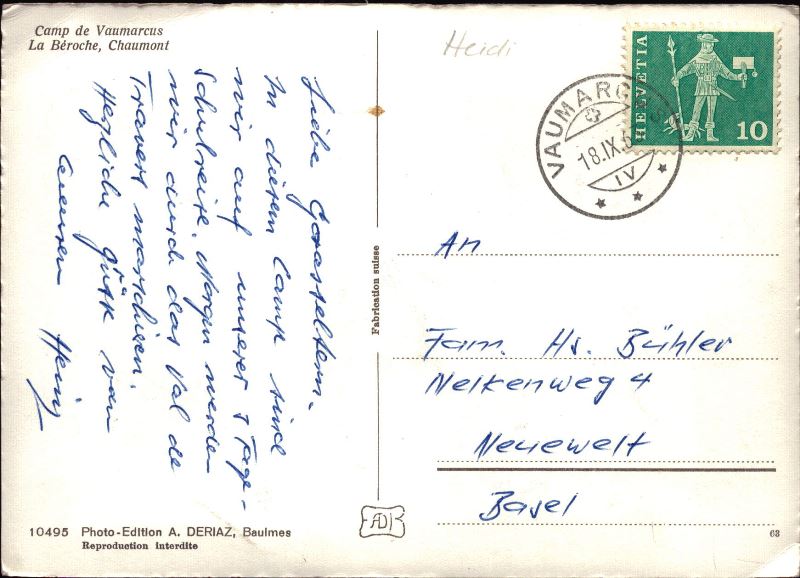 Camp de Vaumarcus
La Béroche, Chaumont
Heidi
HELVETIA
10
VAUMARCUS
18.IX.6
IV
Liebe Grosseltern.
In diesem Camp sind
wir auf unserer 3 Tage-
Schulreise. Morgen werden
wir durch das Val de
Travers marschieren.
Herzliche Grüsse von
eurem Heinz
Fabrication suisse
An
Fam. Hs. Bühler
Nelkenweg 4
Neuewelt
Basel
10495 Photo-Edition A. DERIAZ, Baulmes
Reproduction interdite
63